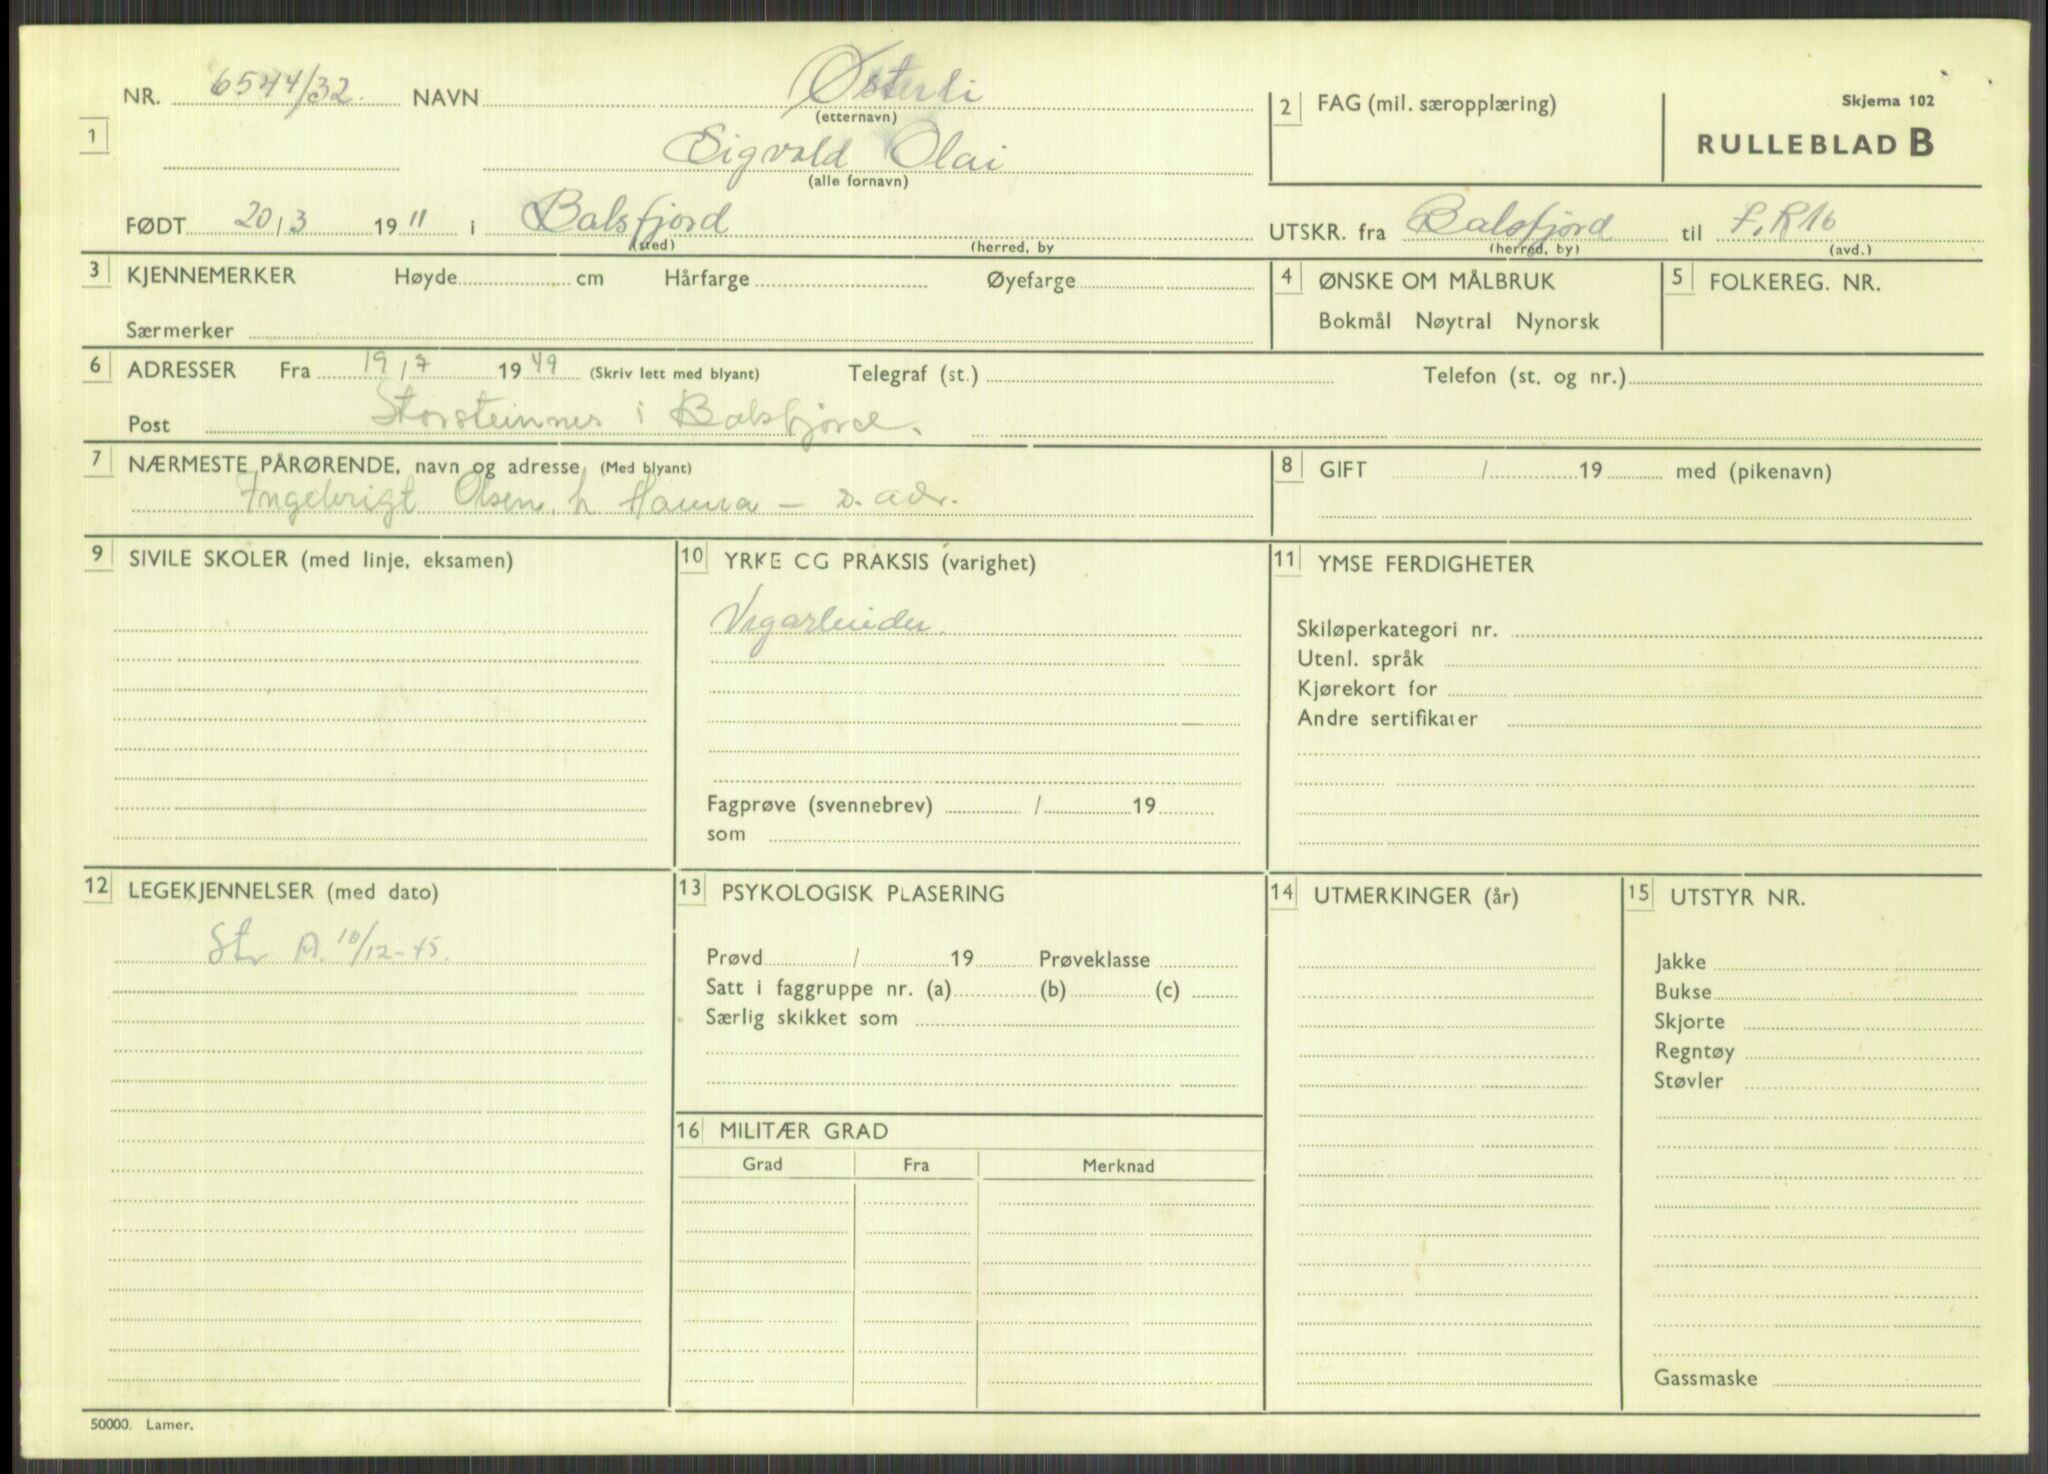 NR. 6544/32. NAVN Østerli
(etternavn)
2 FAG (mil. særopplæring)
Skjema 102
RULLEBLAD B
1
Sigvald Olai
(alle fornavn)
FØDT 20/3 1911 i Balsfjord
(sted) (herred, by
UTSKR. fra Balsfjord til F.R16
(herred, by) (avd.)
3 KJENNEMERKER Høyde cm Hårfarge Øyefarge
Særmerker
4 ØNSKE OM MÅLBRUK
Bokmål Nøytral Nynorsk
5 FOLKEREG. NR.
6 ADRESSER Fra 19/7 1949 (Skriv lett med blyant) Telegraf (st.) Telefon (st. og nr.)
Post Storsteinnes i Balsfjord.
7 NÆRMESTE PÅRØRENDE, navn og adresse (Med blyant)
Ingebrigt Olsen, h Hanna — s. adr.
8 GIFT / 19 med (pikenavn)
9 SIVILE SKOLER (med linje, eksamen)
10 YRKE CG PRAKSIS (varighet)
Vegarbeider.
Fagprøve (svennebrev) / 19
som
11 YMSE FERDIGHETER
Skiløperkategori nr.
Utenl. språk
Kjørekort for
Andre sertifikater
12 LEGEKJENNELSER (med dato)
Str A. 10/12-45.
13 PSYKOLOGISK PLASERING
Prøvd / 19 Prøveklasse
Satt i faggruppe nr. (a) (b) (c)
Særlig skikket som
14 UTMERKINGER (år)
15 UTSTYR NR.
Jakke
Bukse
Skjorte
Regntøy
Støvler
Gassmaske
16 MILITÆR GRAD
Grad Fra Merknad
50000. Lamer.